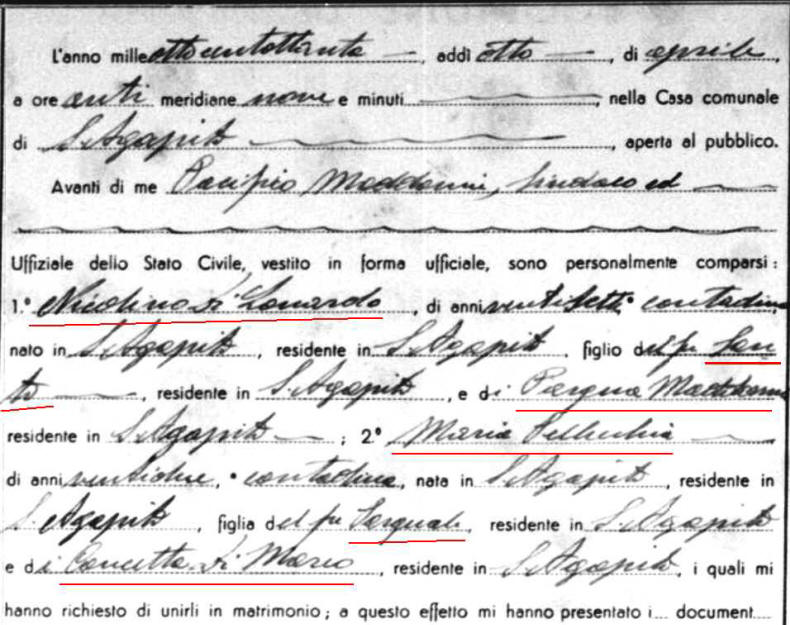 L'anno mille ottocentottanta, addì otto, di aprile,
a ore anti meridiane nove e minuti, nella Casa comunale
di S. Agapito, aperta al pubblico.
Avanti di me Pacifico Maddonni, Sindaco ed
Uffiziale dello Stato Civile, vestito in forma ufficiale, sono personalmente comparsi:
1.° Nicolino Di Leonardo, di anni ventisette contadino
nato in S. Agapito, residente in S. Agapito, figlio del fu San
to, residente in S. Agapito, e di Pasqua Maddonni
residente in S. Agapito; 2.° Maria Pellecchia
di anni ventidue, contadina, nata in S. Agapito, residente in
S. Agapito, figlia del fu Pasquale, residente in S. Agapito
e di Concetta Di Marco, residente in S. Agapito, i quali mi
hanno richiesto di unirli in matrimonio; a questo effetto mi hanno presentato i... document...